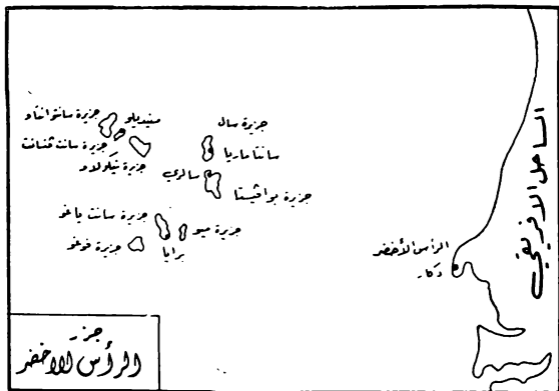 جزيرة سانتوانتاو
منيديلو
جزيرة سانت ڤنسانت
جزيرة نيكولاو
جزيرة سال
سانتاماريا
سالري
جزيرة بواڤيستا
جزيرة سانت ياغو
جزيرة ميو
برايا
جزيرة فوغو
الساحل الافريقي
الرأس الأخضر
دكار
جزر
الرأس الاخضر